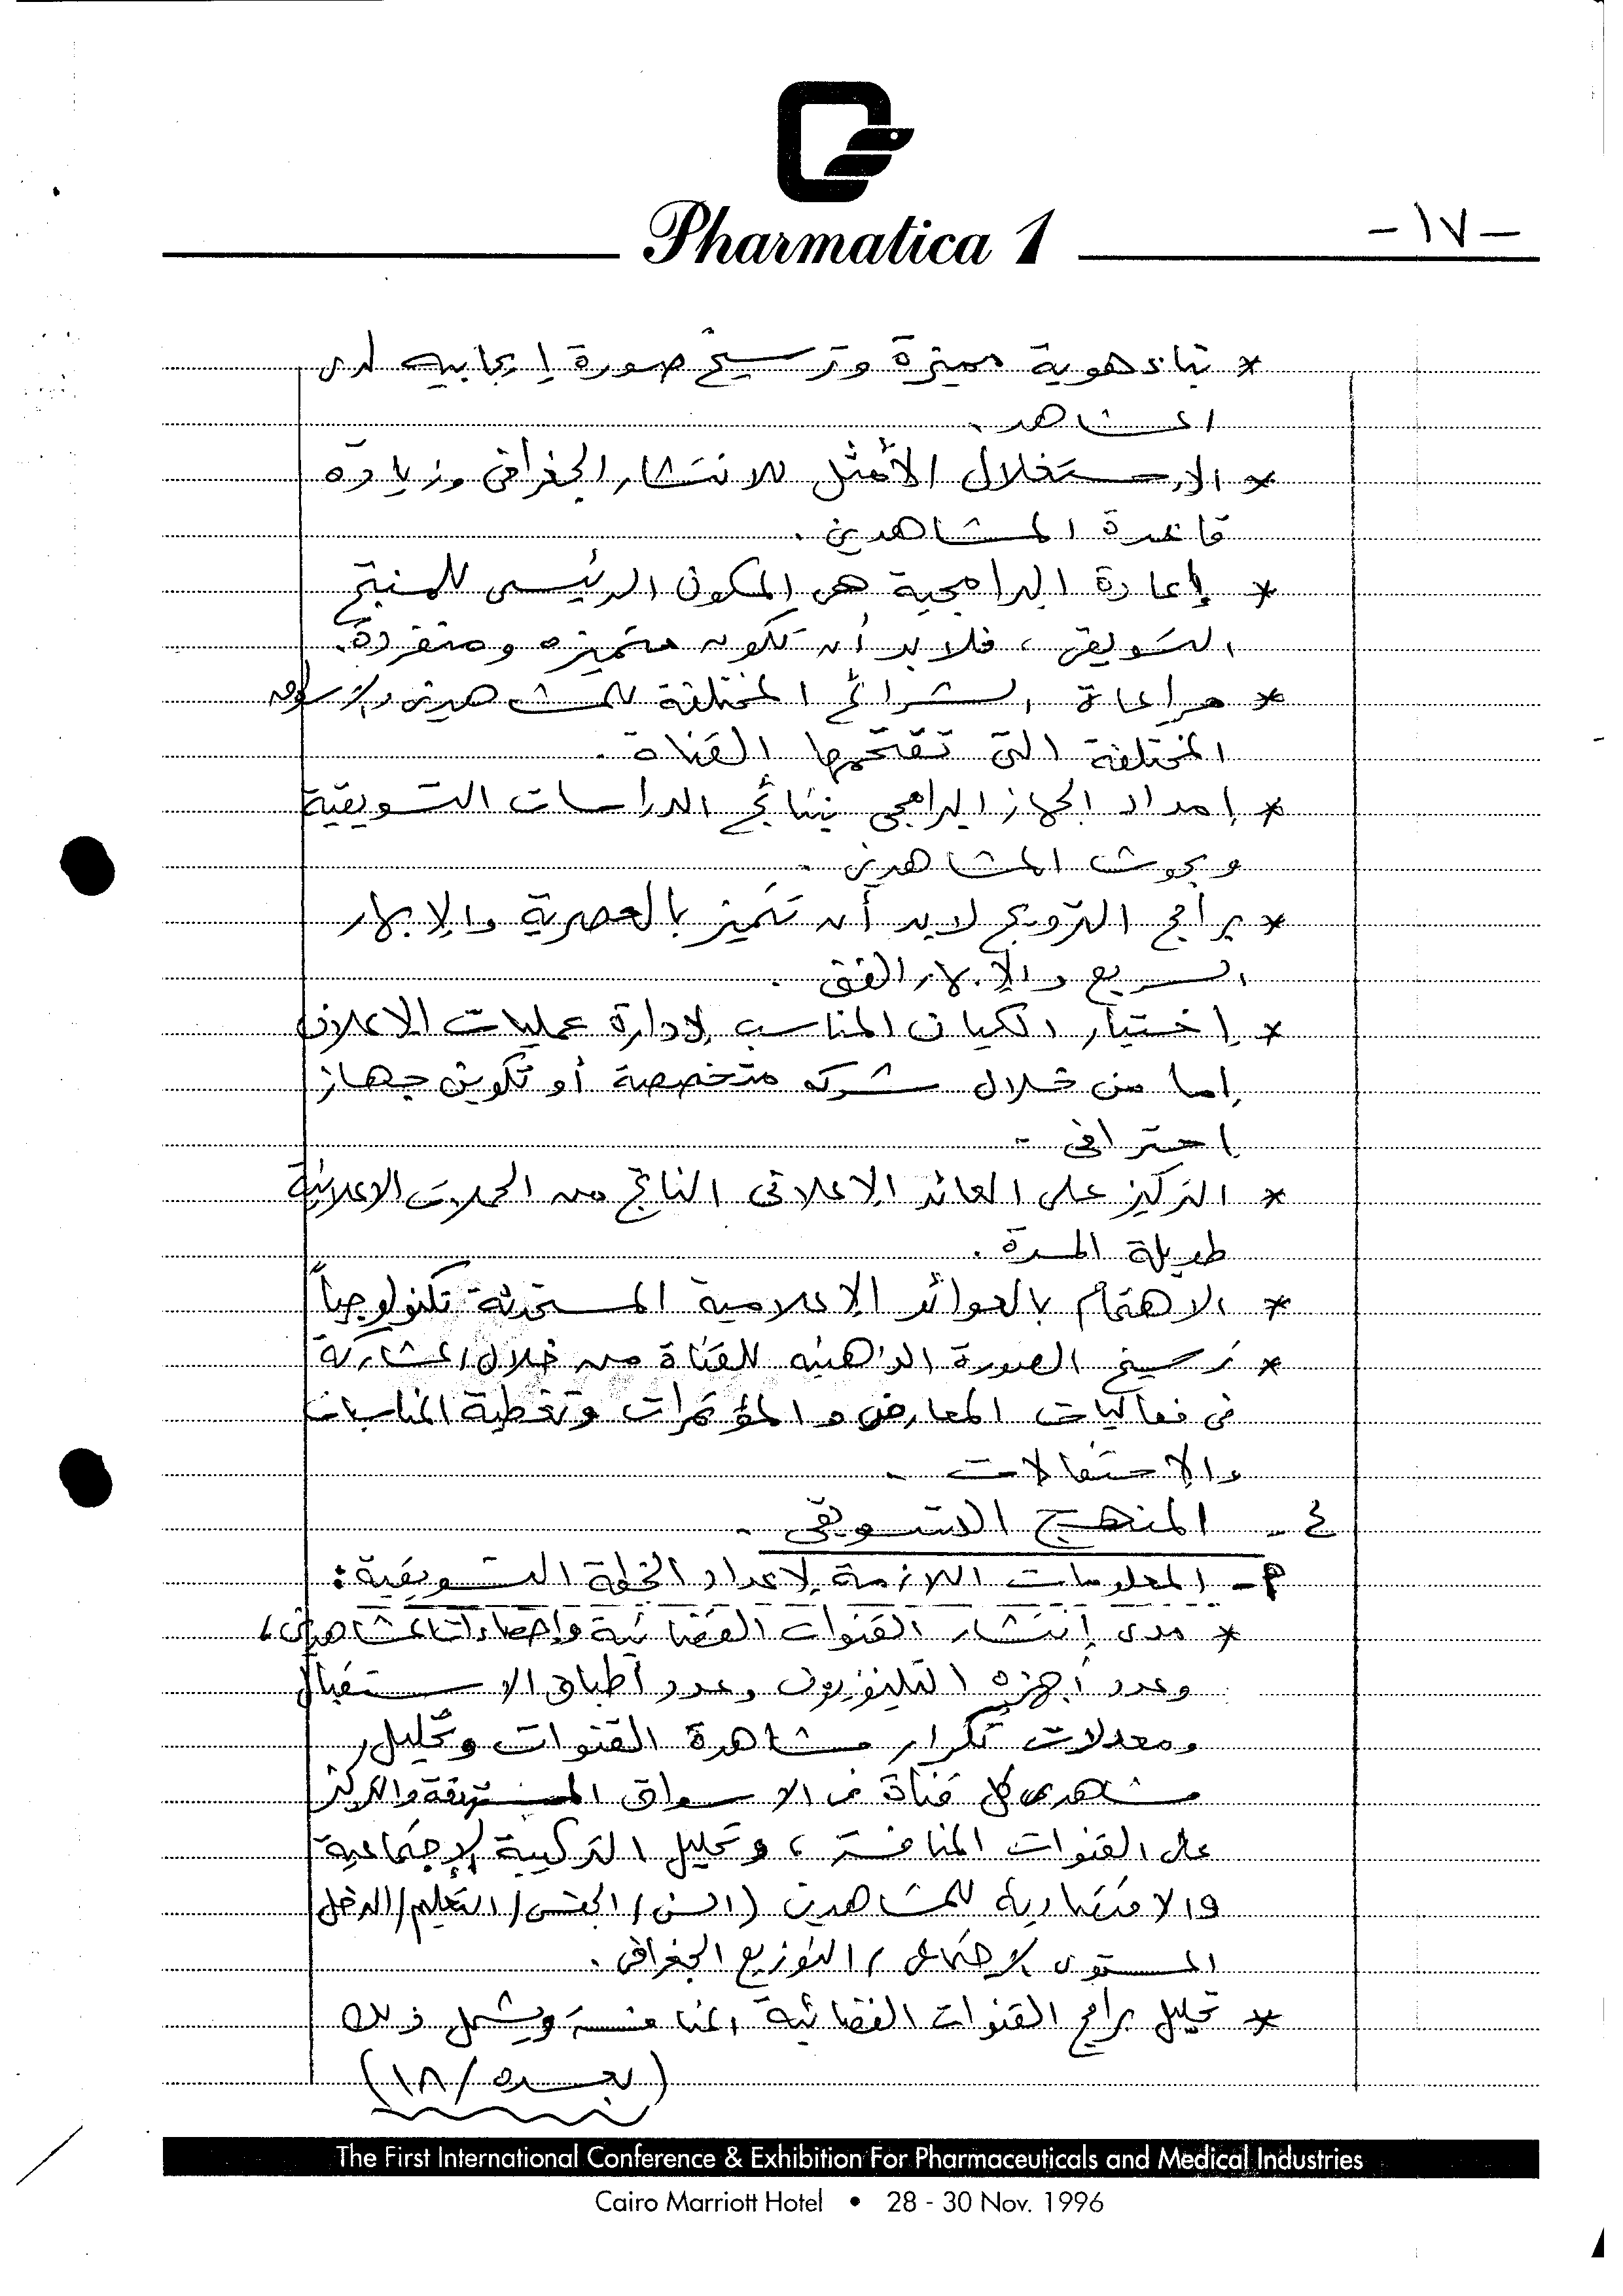 Pharmatica 1
- ١٧ -
* هوية مميزة وترسيخ صورة إيجابيه لدى
المشاهد.
* الإستغلال الأمثل للانتشار الجغرافى وزيادة
قاعدة المشاهدين.
* إعادة البرامجية هى المكون الرئيسى للمنتج
التسويقى، فلابد أن تكون متميزه ومتفردة.
* مراعاة الشرائح المختلفة للمشاهدين والأسواق
المختلفة التى تقتحمها القناة.
* إمداد الجهاز البرامجى بنتائج الدراسات التسويقية
وبحوث المشاهدين.
* برامج الترويج لابد أن تتميز بالعصرية والإبهار
السريع والإبهار الفنى.
* إختيار الكيان المناسب لإدارة عمليات الإعلان
إما من خلال شركه متخصصة أو تكوين جهاز
إحترافى.
* التركيز على العائد الإعلانى الناتج من الحملات الاعلانية
طويلة المدة.
* الاهتمام بالعوائد الإعلامية المستحدثة تكنولوجياً
* ترسيخ الصورة الذهنيه للقناة من خلال المشاركة
فى فعاليات المعارض والمؤتمرات وتغطية المناسبات
والإحتفالات.
٤ - المنهج التسويقى.
أ - المعلومات اللازمة لإعداد الخطة التسويقية:
* مدى إنتشار القنوات الفضائية وإحصاءات المشاهدين،
وعدد أجهزه التليفزيون وعدد أطباق الاستقبال
ومعدلات تكرار مشاهدة القنوات وتحليل
مشاهدى كل قناة فى الأسواق المستهدفة والتركيز
على القنوات المنافسة، وتحليل التركيبة الإجتماعية
والاقتصادية للمشاهدين (السن/الجنس/التعليم/الدخل/
المستوى الاجتماعى/التوزيع الجغرافى.
* تحليل برامج القنوات الفضائية المنافسة ويشمل ذلك
(بعده/١٨)
The First International Conference & Exhibition For Pharmaceuticals and Medical Industries
Cairo Marriott Hotel • 28 - 30 Nov. 1996